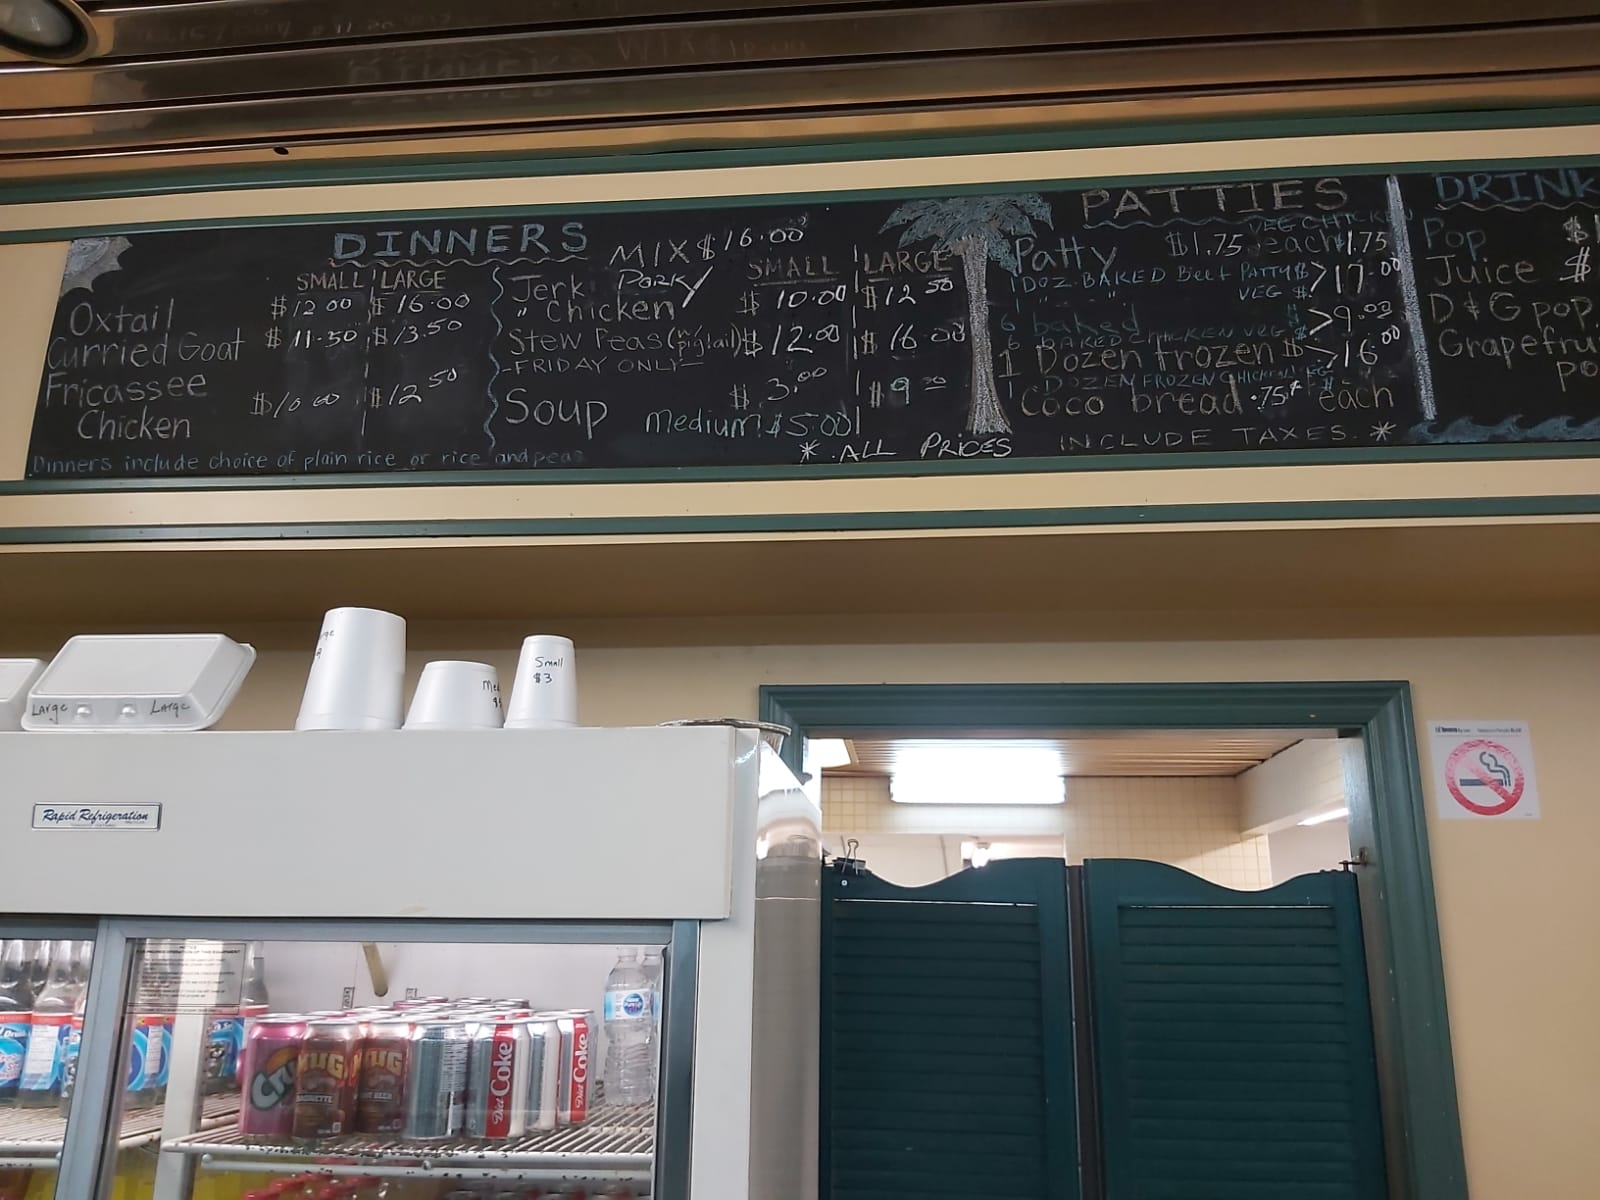 DINNERS
MIX $16.00
SMALL LARGE
Oxtail $12.00 $16.00
Curried Goat $11.50 $13.50
Fricassee
Chicken $10.00 $12.50
Dinners include choice of plain rice or rice and peas
SMALL LARGE
Jerk Pork/
" Chicken $10.00 $12.50
Stew Peas (w/ pigtail) $12.00 $16.00
-FRIDAY ONLY-
Soup $3.00 $9.00
Medium $5.00
* ALL PRICES INCLUDE TAXES. *
PATTIES
VEG CHICKEN
Patty $1.75 each 1.75
1 DOZ. BAKED Beef PATTY $ >17.00
1 " " " VEG $
6 baked $ >9.00
6 BAKED CHICKEN VEG $
1 Dozen frozen $ >16.00
1 DOZEN FROZEN CHICKEN VEG $
Coco bread .75¢ each
DRINK
Pop $1
Juice $
D&G pop
Grapefru
po
LARGE LARGE
Small
$3
Rapid Refrigeration
Crush
MUG
MUG
ROOT BEER
Diet Coke
Diet Coke